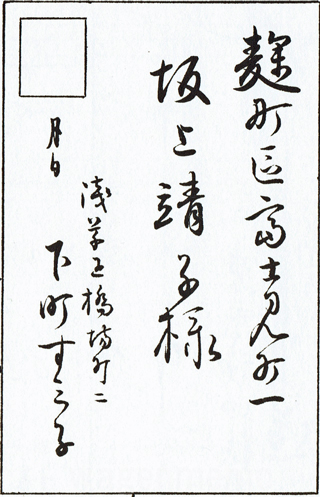 麹町區富士見町一
坂上靖子様
月日
淺草區橋場町二
下町すみ子